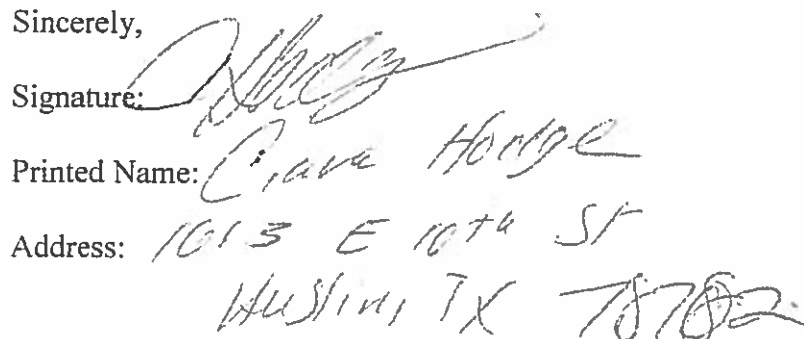 Sincerely,
Signature:
Printed Name: Hodge
Address: 1013 E 10th St
Austin, TX 78702